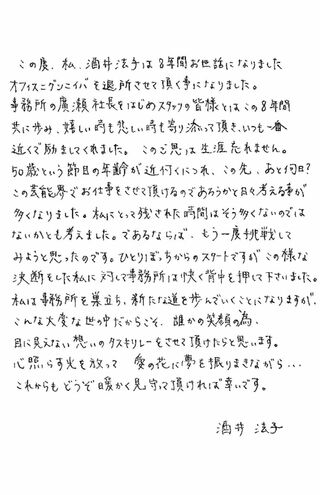 この度、私、酒井法子は8年間お世話になりました
オフィスニグンニイバを退所させて頂く事になりました。
事務所の廣瀬社長をはじめスタッフの皆様とはこの8年間
共に歩み、嬉しい時も悲しい時も寄り添って頂き、いつも一番
近くで励ましてくれました。このご恩は生涯忘れません。
50歳という節目の年齢が近付くにつれ、この先、あと何日?
この芸能界でお仕事をさせて頂けるのであろうかと日々考える事が
多くなりました。私にとって残された時間はそう多くないのでは
ないかとも考えました。であるならば、もう一度挑戦して
みようと思ったのです。ひとりぼっちからのスタートですがこの様な
決断をした私に対して事務所は快く背中を押して下さいました。
私は事務所を巣立ち、新たな道を歩んでいくことになりますが、
こんな大変な世の中だからこそ、誰かの笑顔の為、
目に見えない想いのタスキリレーをさせて頂けたらと思います。
心照らす光を放って 愛の花に夢を振りまきながら...
これからもどうぞ暖かく見守って頂ければ幸いです。
酒井 法子